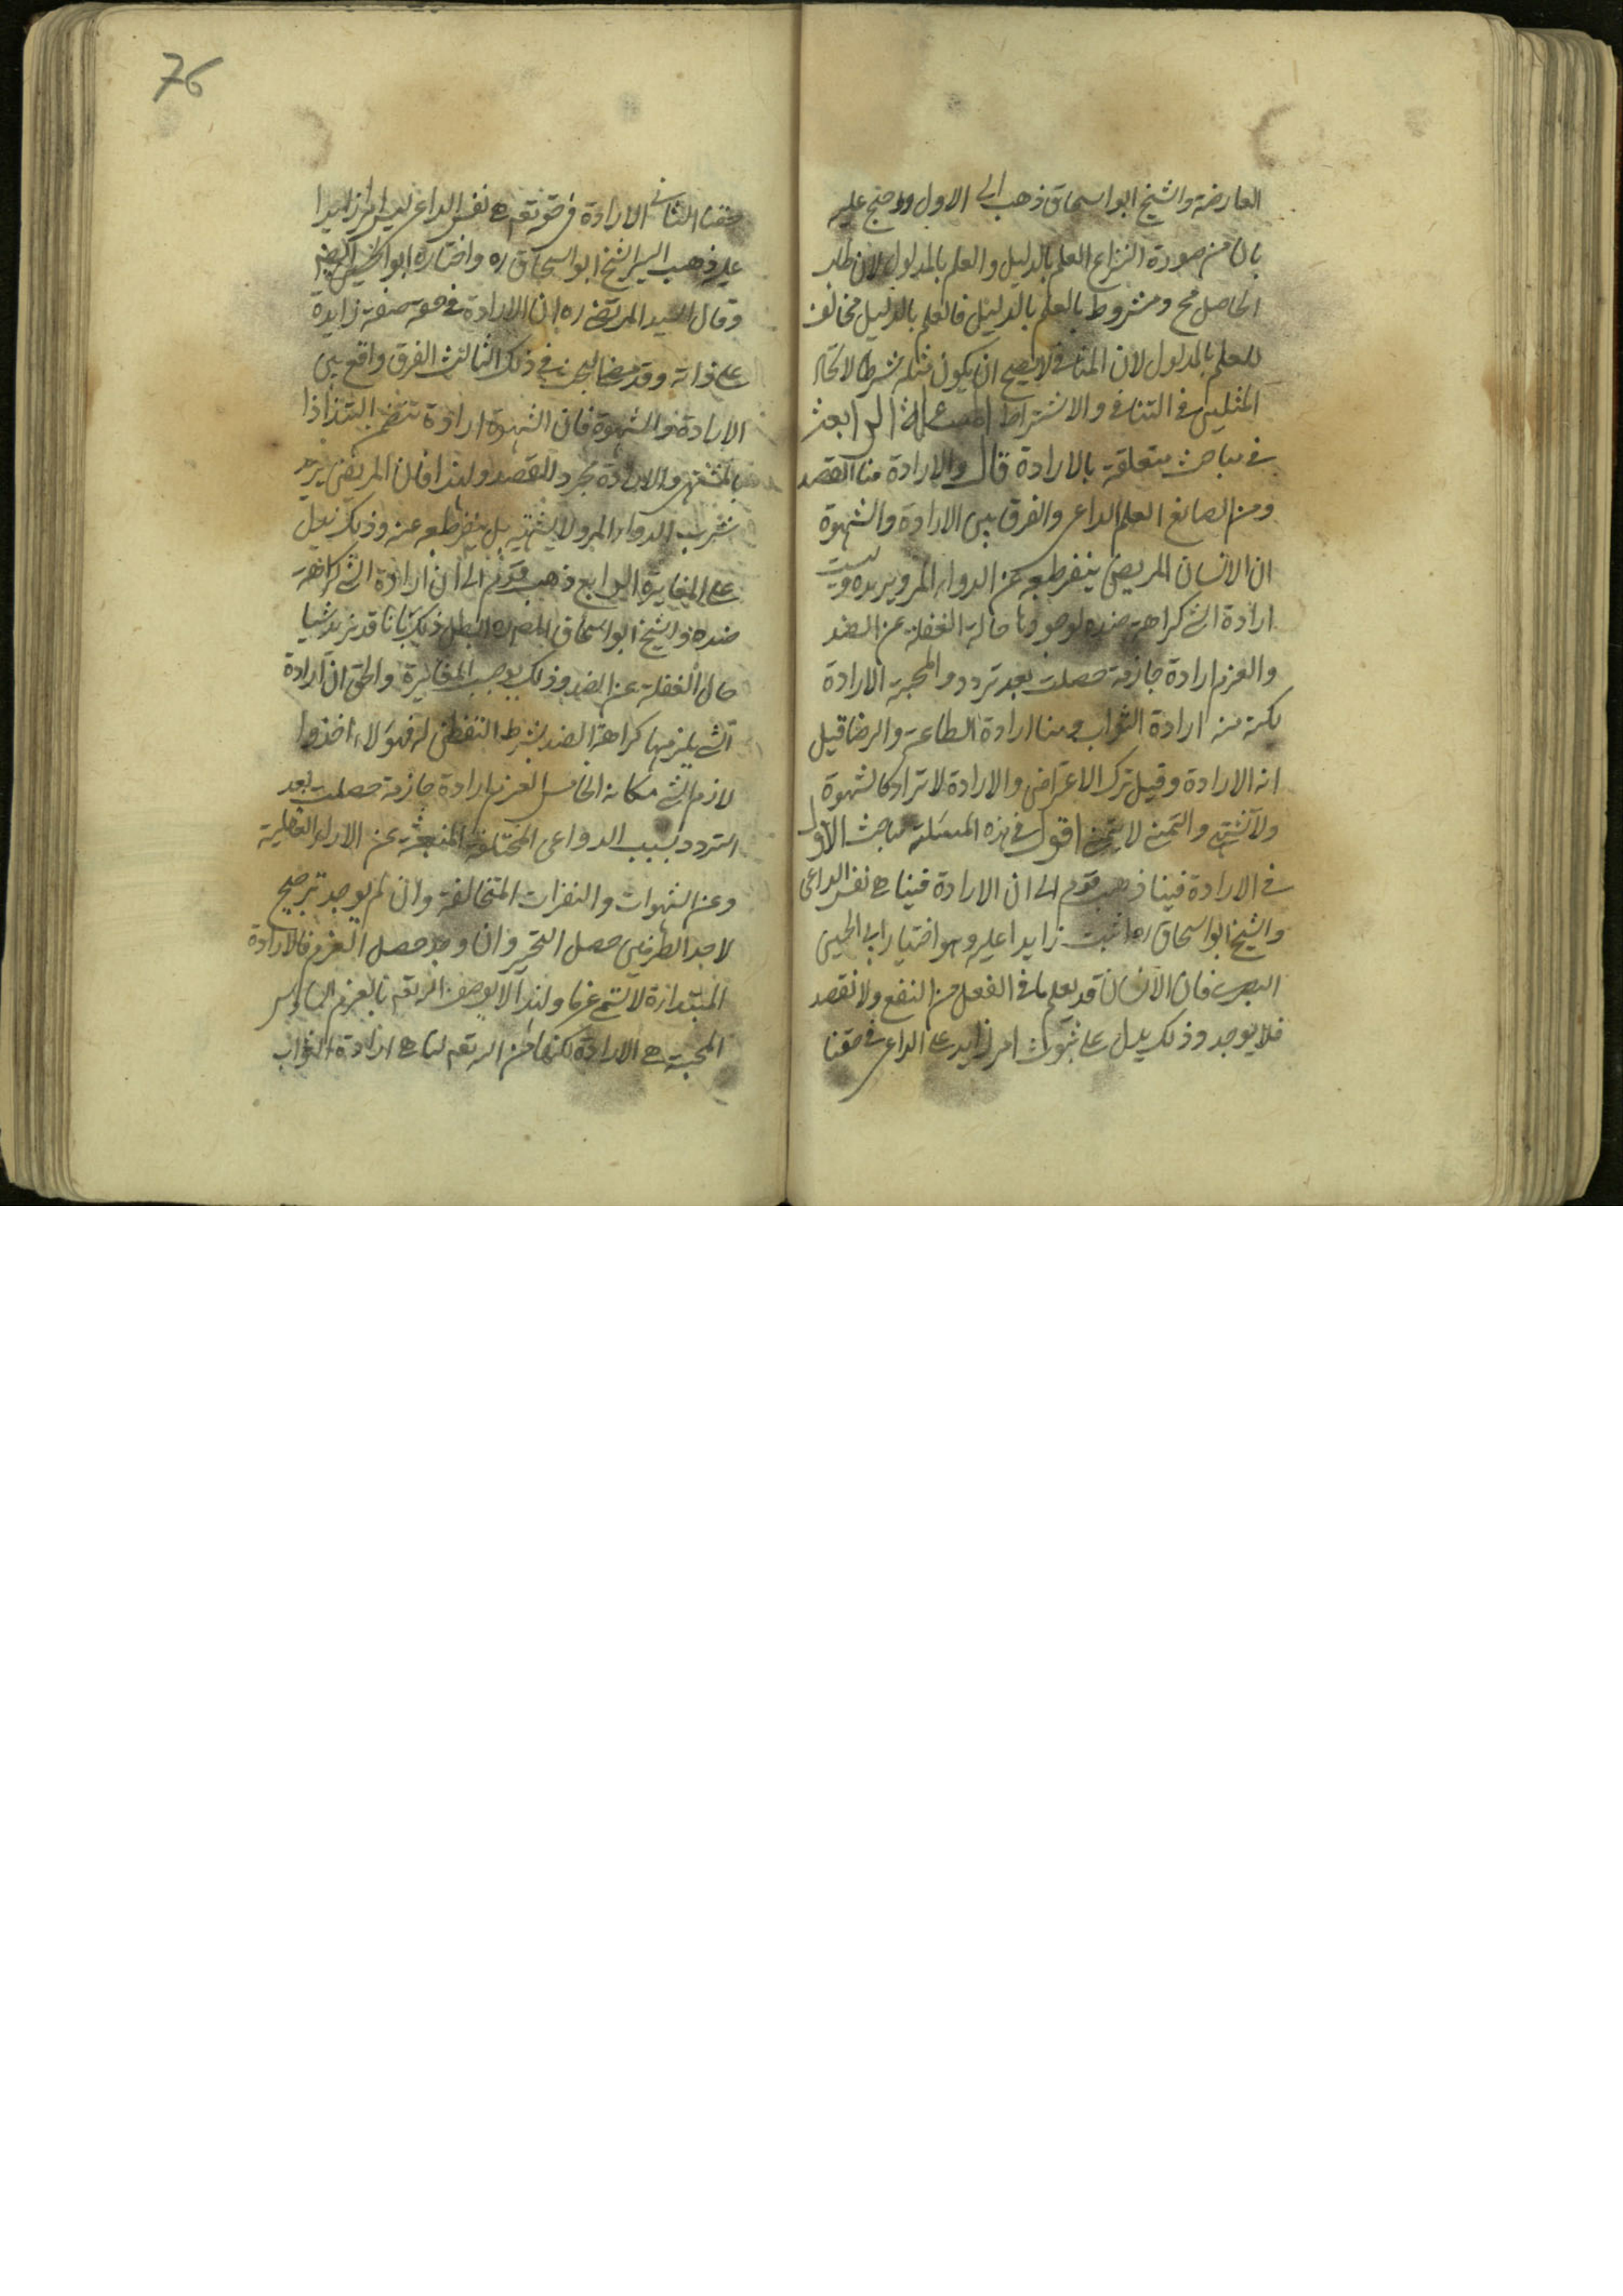 العارضة والشيخ ابو اسحاق ذهب الى الاول واحتج عليه
بان من صورة النزاع العلم بالدليل والعلم بالمدلول لان طلب
الحاصل مح ومشروط بالعلم بالدليل فالعلم بالدليل مخالف
للعلم بالمدلول لان المنافى لا يصح ان يكون شرطا لاتحاد
المثلين فى التنافى والاشتراط المسئلة الرابعة
فى مباحث متعلقة بالارادة قال والارادة منا القصد
ومن الصانع العلم الداعى والفرق بين الارادة والشهوة
ان الانسان المريض ينفر طبعه عن الدواء المر ويريده وليست
ارادة الشى كراهة ضده لوجودنا حالة الغفلة عن الضد
والعزم ارادة جازمة حصلت بعد تردد والمحبة الارادة
لكن منه ارادة الثواب ومنا ارادة الطاعة والرضا قيل
انه الارادة وقيل ترك الاعتراض والارادة لا تراد كالشهوة
ولا تشتهى والتمنى لا يتمنى اقول فى هذه المسئلة مباحث الاول
فى الارادة فينا ذهب قوم الى ان الارادة فينا هى نفس الداعى
والشيخ ابو اسحاق ره اثبت زايدا عليه وهو اختيار ابى الحسين
البصرى فان الانسان قد يعلم ما فى الفعل من النفع ولا نقصد
فلا يوجد وذلك يدل على ثبوت امر زايد على الداعى فى حقنا
76
حقنا الثانى الارادة فى حقه تعم هى نفس الداعى ليس امرا زايدا
عليه ذهب اليه الشيخ ابو اسحاق ره واختاره ابو الحسين البصرى
وقال السيد المرتضى ره ان الارادة فى حقه صفة زايدة
على ذاته وقد مضى البحث فى ذلك الثالث الفرق واقع بين
الارادة والشهوة فان الشهوة ارادة تتضمن التذاذا
بالمشتهى والارادة مجرد القصد ولهذا فان المريض يريد
شرب الدواء المر ولا يشتهيه بل ينفر طبعه عنه وذلك يدل
على المغايرة الرابع ذهب قوم الى ان ارادة الشى كراهة
ضده والشيخ ابو اسحاق المصره ابطل ذلك بانا قد نريد شيا
حال الغفلة عن الضد وذلك يوجب المغايرة والحق ان ارادة
الشى يلزمها كراهة الضد بشرط التفطن له فهولاء اخذوا
لازم الشى مكانه الخامس العزم ارادة جازمة حصلت بعد
التردد بسبب الدواعى المختلفة المنبعثة عن الاراء العقلية
وعن الشهوات والنفرات المتخالفة وان لم يوجد ترجيح
لاحد الطرفين حصل التحير وان وجد حصل العزم فالارادة
المبتدأة لا تسمى عزما ولهذا لا يوصف الله تعم بالعزم السادس
المحبة هى الارادة لكنها من الله تعم لنا هى ارادة الثواب